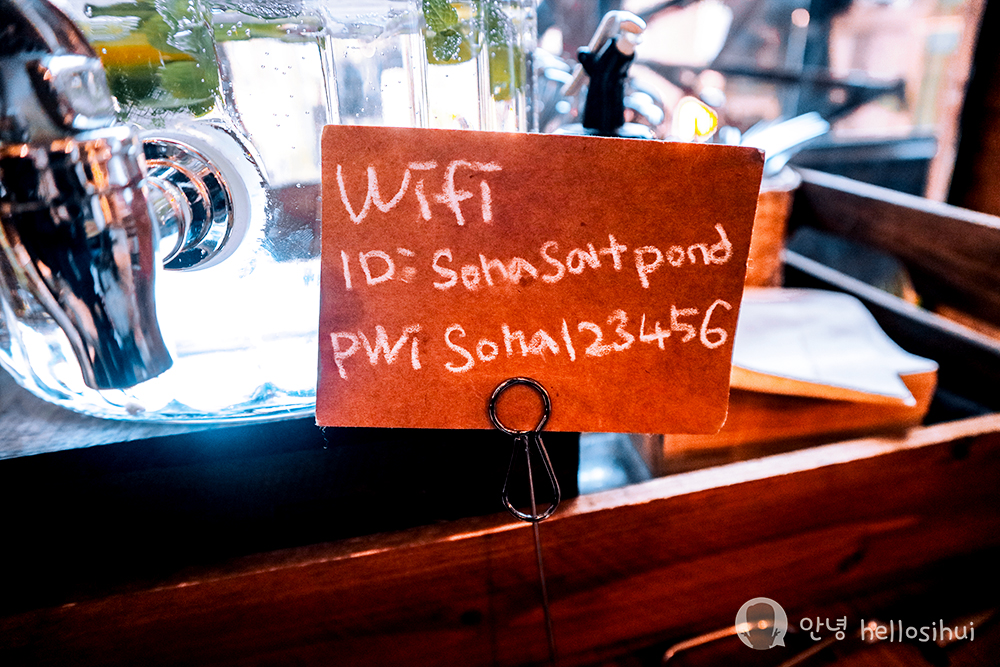 Wifi
ID: Sohasaltpond
PW: Soha123456
안녕 hellosihui